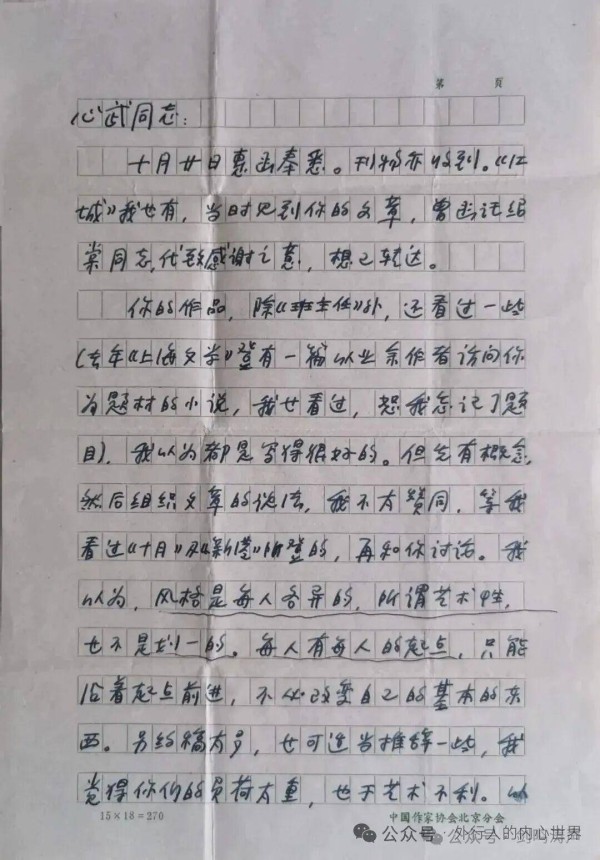 第 頁
心武同志：
十月廿日惠函奉悉。刊物亦收到。《江
城》我也有，当时见到你的文章，曾函託绍
棠同志，代致感谢之意，想已转达。
你的作品，除《班主任》外，还看过一些
（去年《上海文学》登有一篇以业余作者访问你
为题材的小说，我也看过，恕我忘记了题
目），我以为都是写得很好的。但先有概念，
然后组织文章的说法，我不大赞同，等我
看过《十月》及《新港》所登的，再和你讨论。我
以为，风格是每人各异的，所谓艺术性，
也不是划一的。每人有每人的起点，只能
沿着起点前进，不必改变自己的基本的东
西。另约稿太多，也可适当推辞一些，我
觉得你们的负荷太重，也于艺术不利。以
15×18=270 中国作家协会北京分会
公众号·外行人的内心世界